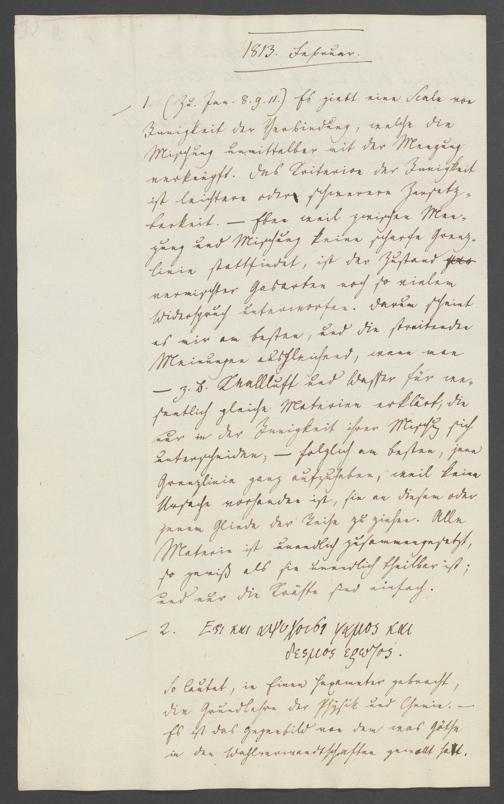 1813. Februar.
1. (Zu. Jan. 8. 9. 11.) Es giebt eine Scale von
Innigkeit der Verbindung, welche die
Mischung unmittelbar mit der Mengung
verknüpft. Das Kriterion der Innigkeit
ist leichtere oder schwerere Zersetz-
barkeit. — Eben weil zwischen Men-
gung und Mischung keine scharfe Grenz-
linie stattfindet, ist der Zustand
vermischter Gasarten noch so vielem
Widerspruch unterworfen. Darum scheint
es mir am besten, und die streitenden
Meinungen ausgleichend, wenn man
— z. B. Knallluft und Wasser für we-
sentlich gleiche Materien erklärt, die
nur in der Innigkeit ihrer Mischg sich
unterscheiden; — folglich am besten, jene
Grenzlinie ganz aufzuheben, weil keine
Ursache vorhanden ist, sie an diesem oder
jenem Gliede der Reihe zu ziehen. Alle
Materie ist unendlich zusammengesetzt,
so gewiß als sie unendlich theilbar ist;
und nur die Kräfte sind einfach.
2. Εστι και αψυχοισι γαμος και
δεσμος ερωτος.
So lautet, in Einen Hexameter gebracht,
die Grundlehre der Physik und Chemie. —
Es ist das Gegenbild von dem was Göthe
in den Wahlverwandtschaften gemalt hat.